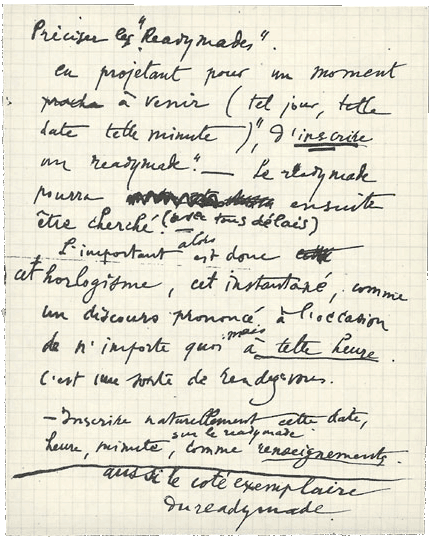 Préciser les "Readymades".
en projetant pour un moment
proche à venir (tel jour, telle
date telle minute)", d'inscrire
un readymade". — Le readymade
pourra ensuite
être cherché. (avec tous délais)
L'important alors est donc
cet horlogisme, cet instantané, comme
un discours prononcé à l'occasion
de n'importe quoi mais à telle heure.
C'est une sorte de rendezvous.
— Inscrire naturellement cette date,
heure, minute, sur le readymade comme renseignements.
aussi le coté exemplaire
du readymade.